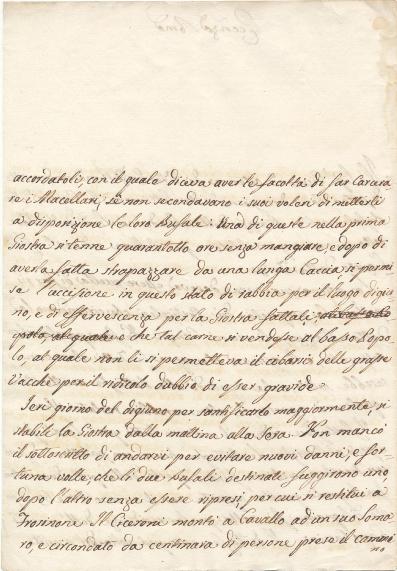 accordatoli, con il quale diceva aver le facoltà di far Carcera-
re i Macellari, se non secondavano i suoi voleri di metterli
a disposizione le loro Bufale: Una di queste nella prima
Giostra si tenne quarantotto ore senza mangiare, e dopo di
averla fatta strapazzare da una lunga Caccia si permi-
se l'uccisione in questo stato di rabbia per il luogo digiu-
no, e di effervescenza per la Giostra fattali,
e che tal carne si vendesse al basso Popo-
lo, al quale non li si permetteva il cibarsi delle grasse
Vacche per il ridicolo dubbio di esser gravide
Jeri giorno del digiuno per santificarlo maggiormente, si
stabilì la Giostra dalla mattina alla Sera Non mancò
il sottoscritto di andarvi per evitare nuovi danni, e for-
tuna volle, che li due Bufali destinati fuggirono uno,
dopo l'altro senza essere ripresi, per cui si restituì a
Frosinone Il Ciceroni montò a Cavallo ad un suo Soma-
ro, e circondato da centinara di persone prese il cammi-
no